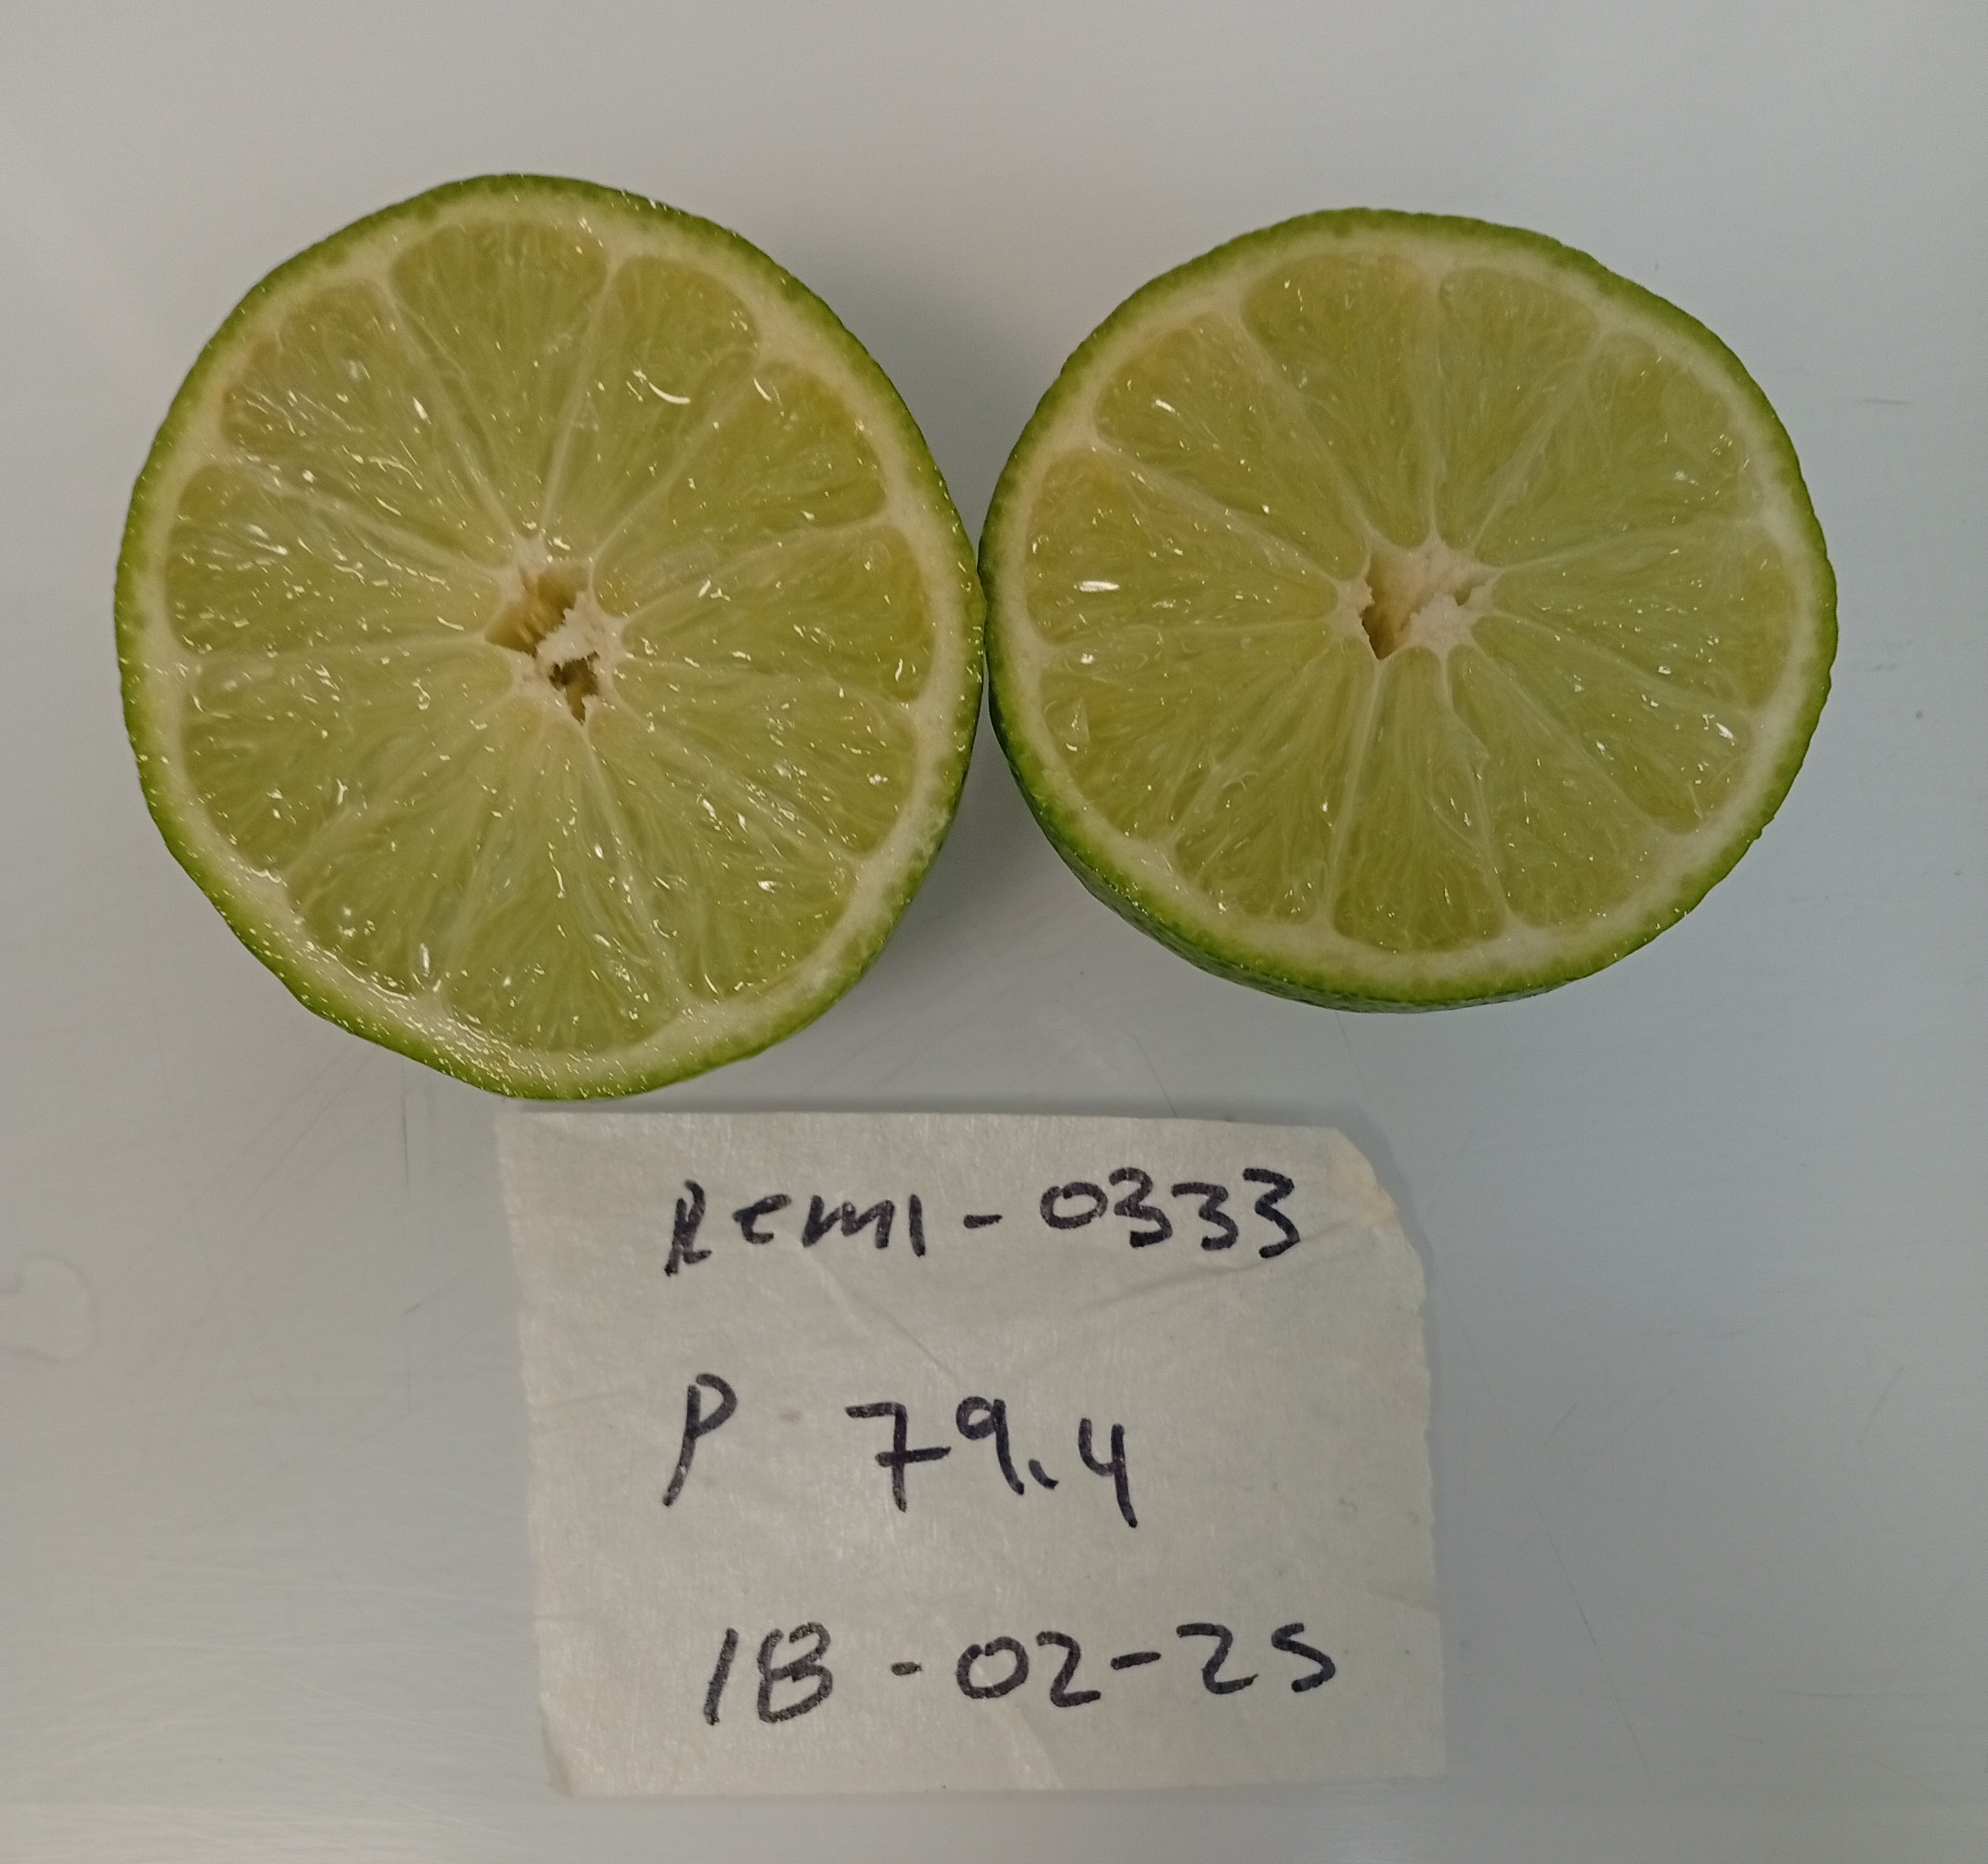 Remi-0333
P 79.4
18-02-25